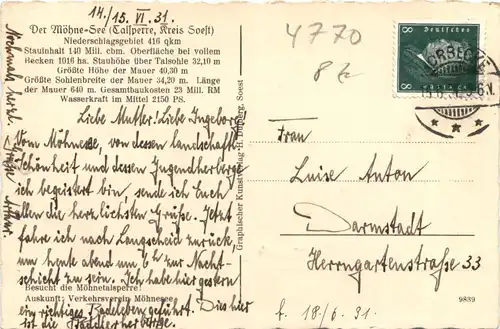 14./15. VI. 31.
Der Möhne-See (Talsperre, Kreis Soest)
Niederschlagsgebiet 416 qkm
Stauinhalt 140 Mill. cbm. Oberfläche bei vollem
Becken 1016 ha. Stauhöhe über Talsohle 32,10 m
Größte Höhe der Mauer 40,30 m
Größte Sohlenbreite der Mauer 34,20 m. Länge
der Mauer 640 m. Gesamtbaukosten 23 Mill. RM
Wasserkraft im Mittel 2150 PS.
Liebe Mutter! Liebe Ingeborg
Vom Möhnesee, von dessen landschaftl.
Schönheit und dessen Jugendherberge
ich begeistert bin, sende ich Euch
allen die herzlichsten Grüße. Jetzt
fahre ich nach Langscheid zurück,
um heute abend um zur Nacht-
schicht zu sein. Ich habe hier gestern
Besucht die Möhnetalsperre!
Auskunft: Verkehrsverein Möhnesee
ein richtiges Badeleben geführt. Dies hier
ist die
Nochmals herzl.
Grüße
Graphischer Kunstverlag H. Soest
4770
8
Deutsches Reich
8 8
KÖRBECKE
Frau
Luise Anton
Darmstadt
Herrngartenstraße 33
9839
f. 18/6. 31.